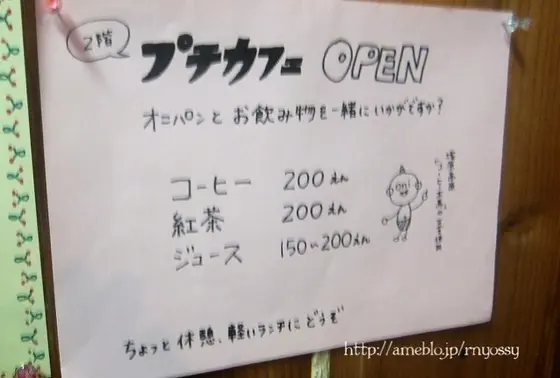 2階
プチカフェ OPEN
オニパンと お飲み物を一緒にいかがですか？
コーヒー 200えん
紅茶 200えん
ジュース 150〜200えん
ちょっと休憩、軽いランチにどうぞ
http://ameblo.jp/rnyossy